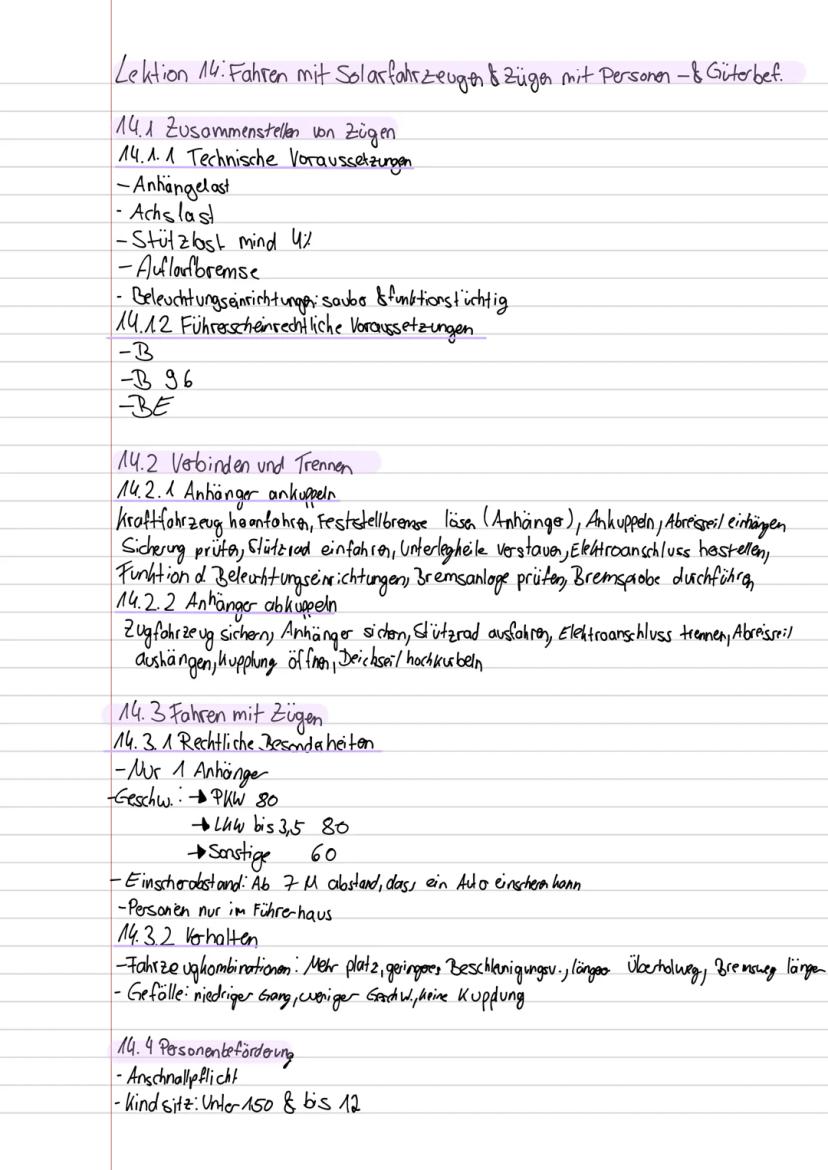 Lektion 14: Fahren mit Solarfahrzeugen & Zügen mit Personen -& Güterbef.
14.1 Zusammenstellen von Zügen
14.1.1 Technische Voraussetzungen
- Anhängelast
- Achslast
- Stützlast mind 4%
- Auflaufbremse
- Beleuchtungseinrichtungen: sauber & funktionstüchtig
14.1.2 Führerscheinrechtliche Voraussetzungen
- B
- B 96
- BE
14.2 Verbinden und Trennen
14.2.1 Anhänger ankuppeln
Kraftfahrzeug heranfahren, Feststellbremse lösen (Anhänger), Ankuppeln, Abreisseil einhängen
Sicherung prüfen, Stützrad einfahren, Unterlegkeile verstauen, Elektroanschluss herstellen,
Funktion d. Beleuchtungseinrichtungen, Bremsanlage prüfen, Bremsprobe durchführen
14.2.2 Anhänger abkuppeln
Zugfahrzeug sichern, Anhänger sichern, Stützrad ausfahren, Elektroanschluss trennen, Abreisseil
aushängen, Kupplung öffnen, Deichseil hochkurbeln
14.3 Fahren mit Zügen
14.3.1 Rechtliche Besonderheiten
- Nur 1 Anhänger
- Geschw.: → PKW 80
→ LKW bis 3,5 80
→ Sonstige 60
- Einscherabstand: Ab 7 M abstand, dass ein Auto einscheren kann
- Personen nur im Führerhaus
14.3.2 Verhalten
- Fahrzeugkombinationen: Mehr platz, geringeres Beschleunigungsv., länger Überholweg, Bremsweg länger
- Gefälle: niedriger Gang, weniger Geschw., keine Kupplung
14.4 Personenbeförderung
- Anschnallpflicht
- Kindsitz: Unter 150 & bis 12